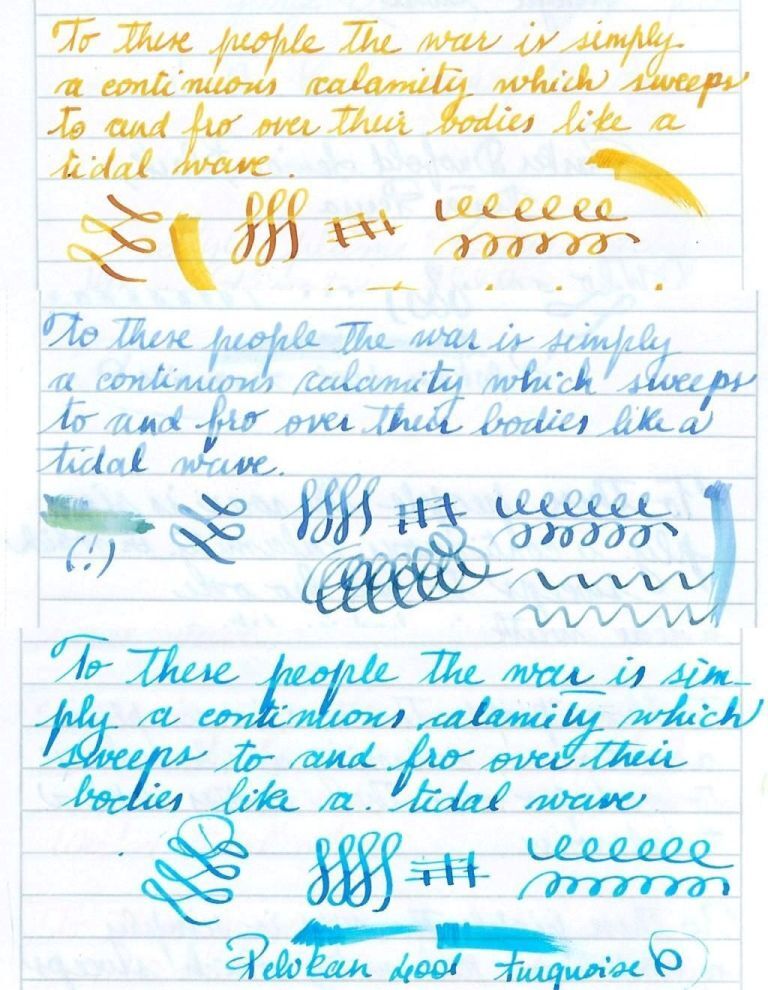 To these people the war is simply
a continuous calamity which sweeps
to and fro over their bodies like a
tidal wave.
To these people the war is simply
a continuous calamity which sweeps
to and fro over their bodies like a
tidal wave.
(!)
To these people the war is sim-
ply a continuous calamity which
sweeps to and fro over their
bodies like a. tidal wave
Pelikan 4001 turquoise